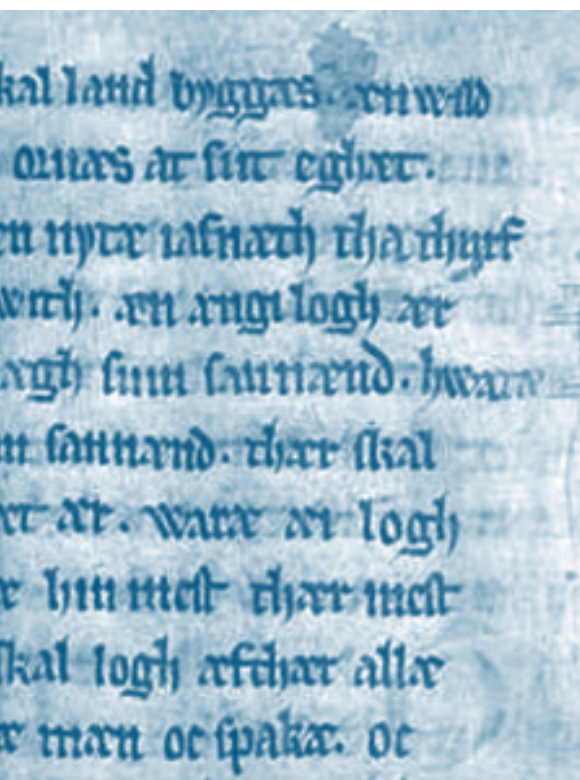 kal land byggæs. æn wild
ornæs at ſint eghæt.
æn nytæ iafnæth tha thyrf
with. æn ængi logh ær
ægh ſum ſannænd. hwaræ
m ſannænd. thær ſkal
æt ær. waræ æi logh
æ hin meſt thær meſt
ſkal logh æfthær allæ
æ mæn oc ſpakæ. oc